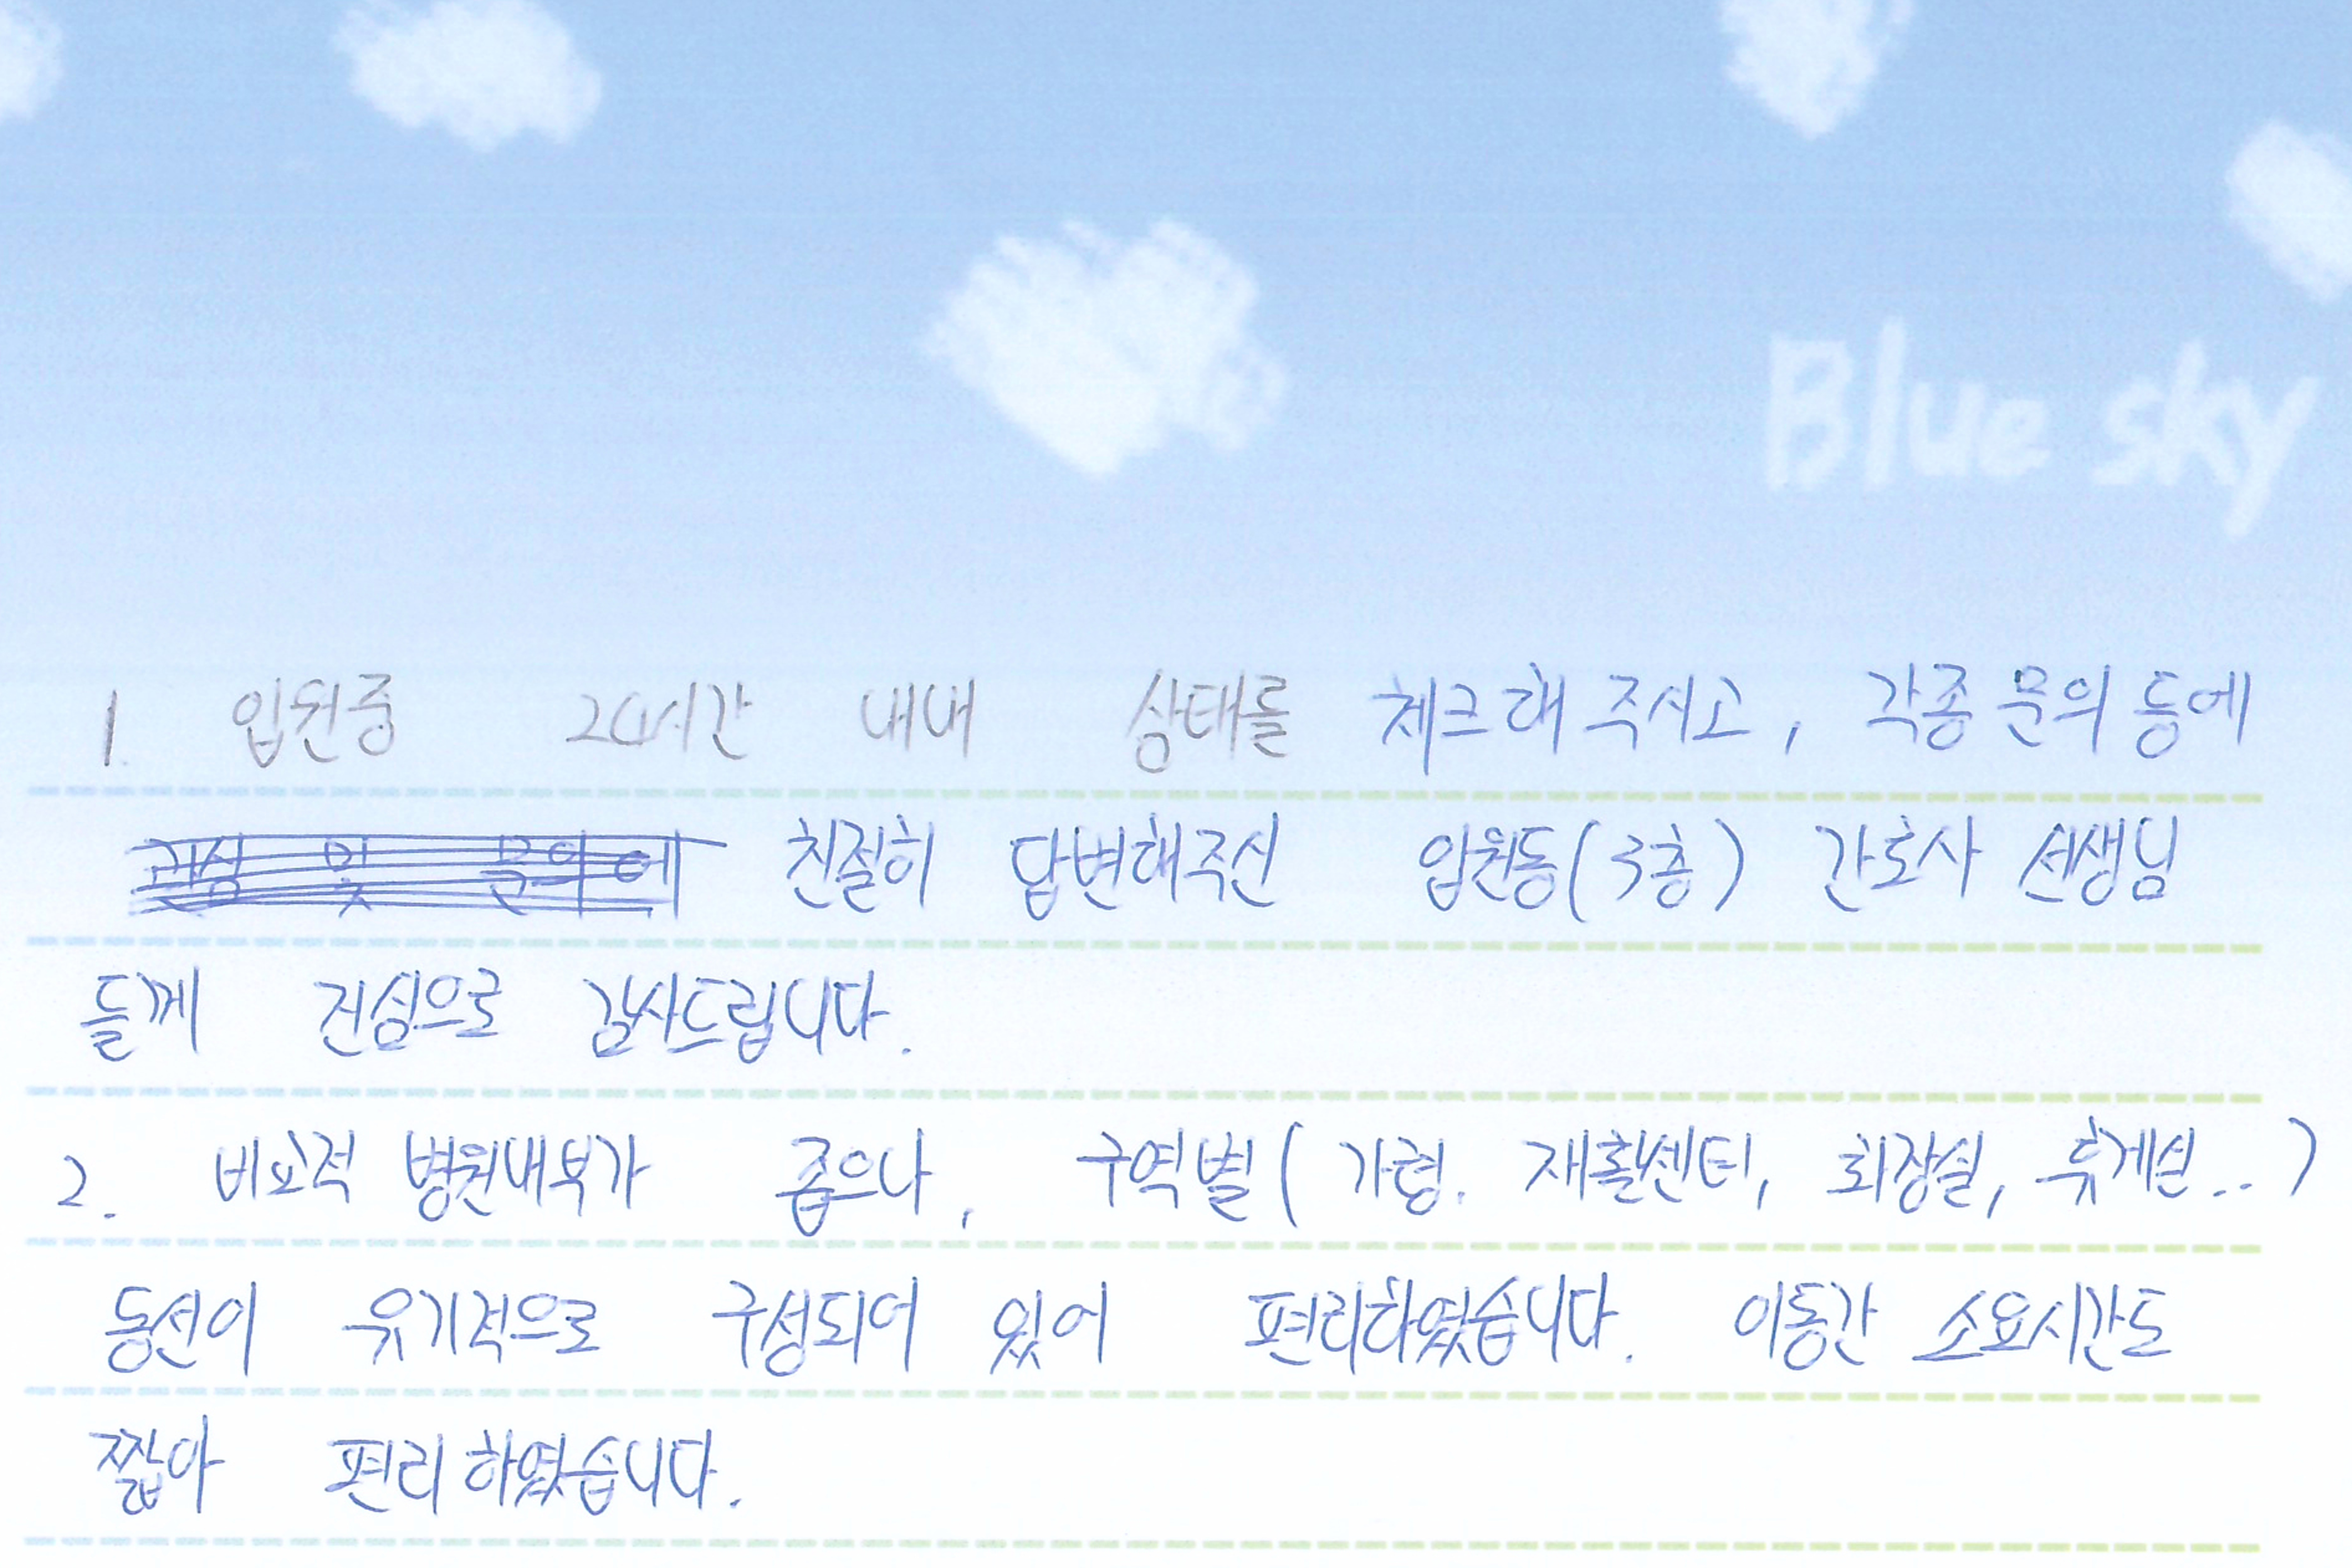 Blue sky
1. 입원중 24시간 내내 상태를 체크해 주시고, 각종 문의 등에
친절히 답변해주신 입원동(3층) 간호사 선생님
들께 진심으로 감사드립니다.
2. 비교적 병원내부가 좁으나, 구역별(가령. 재활센터, 화장실, 휴게실..)
동선이 유기적으로 구성되어 있어 편리하였습니다. 이동간 소요시간도
짧아 편리하였습니다.